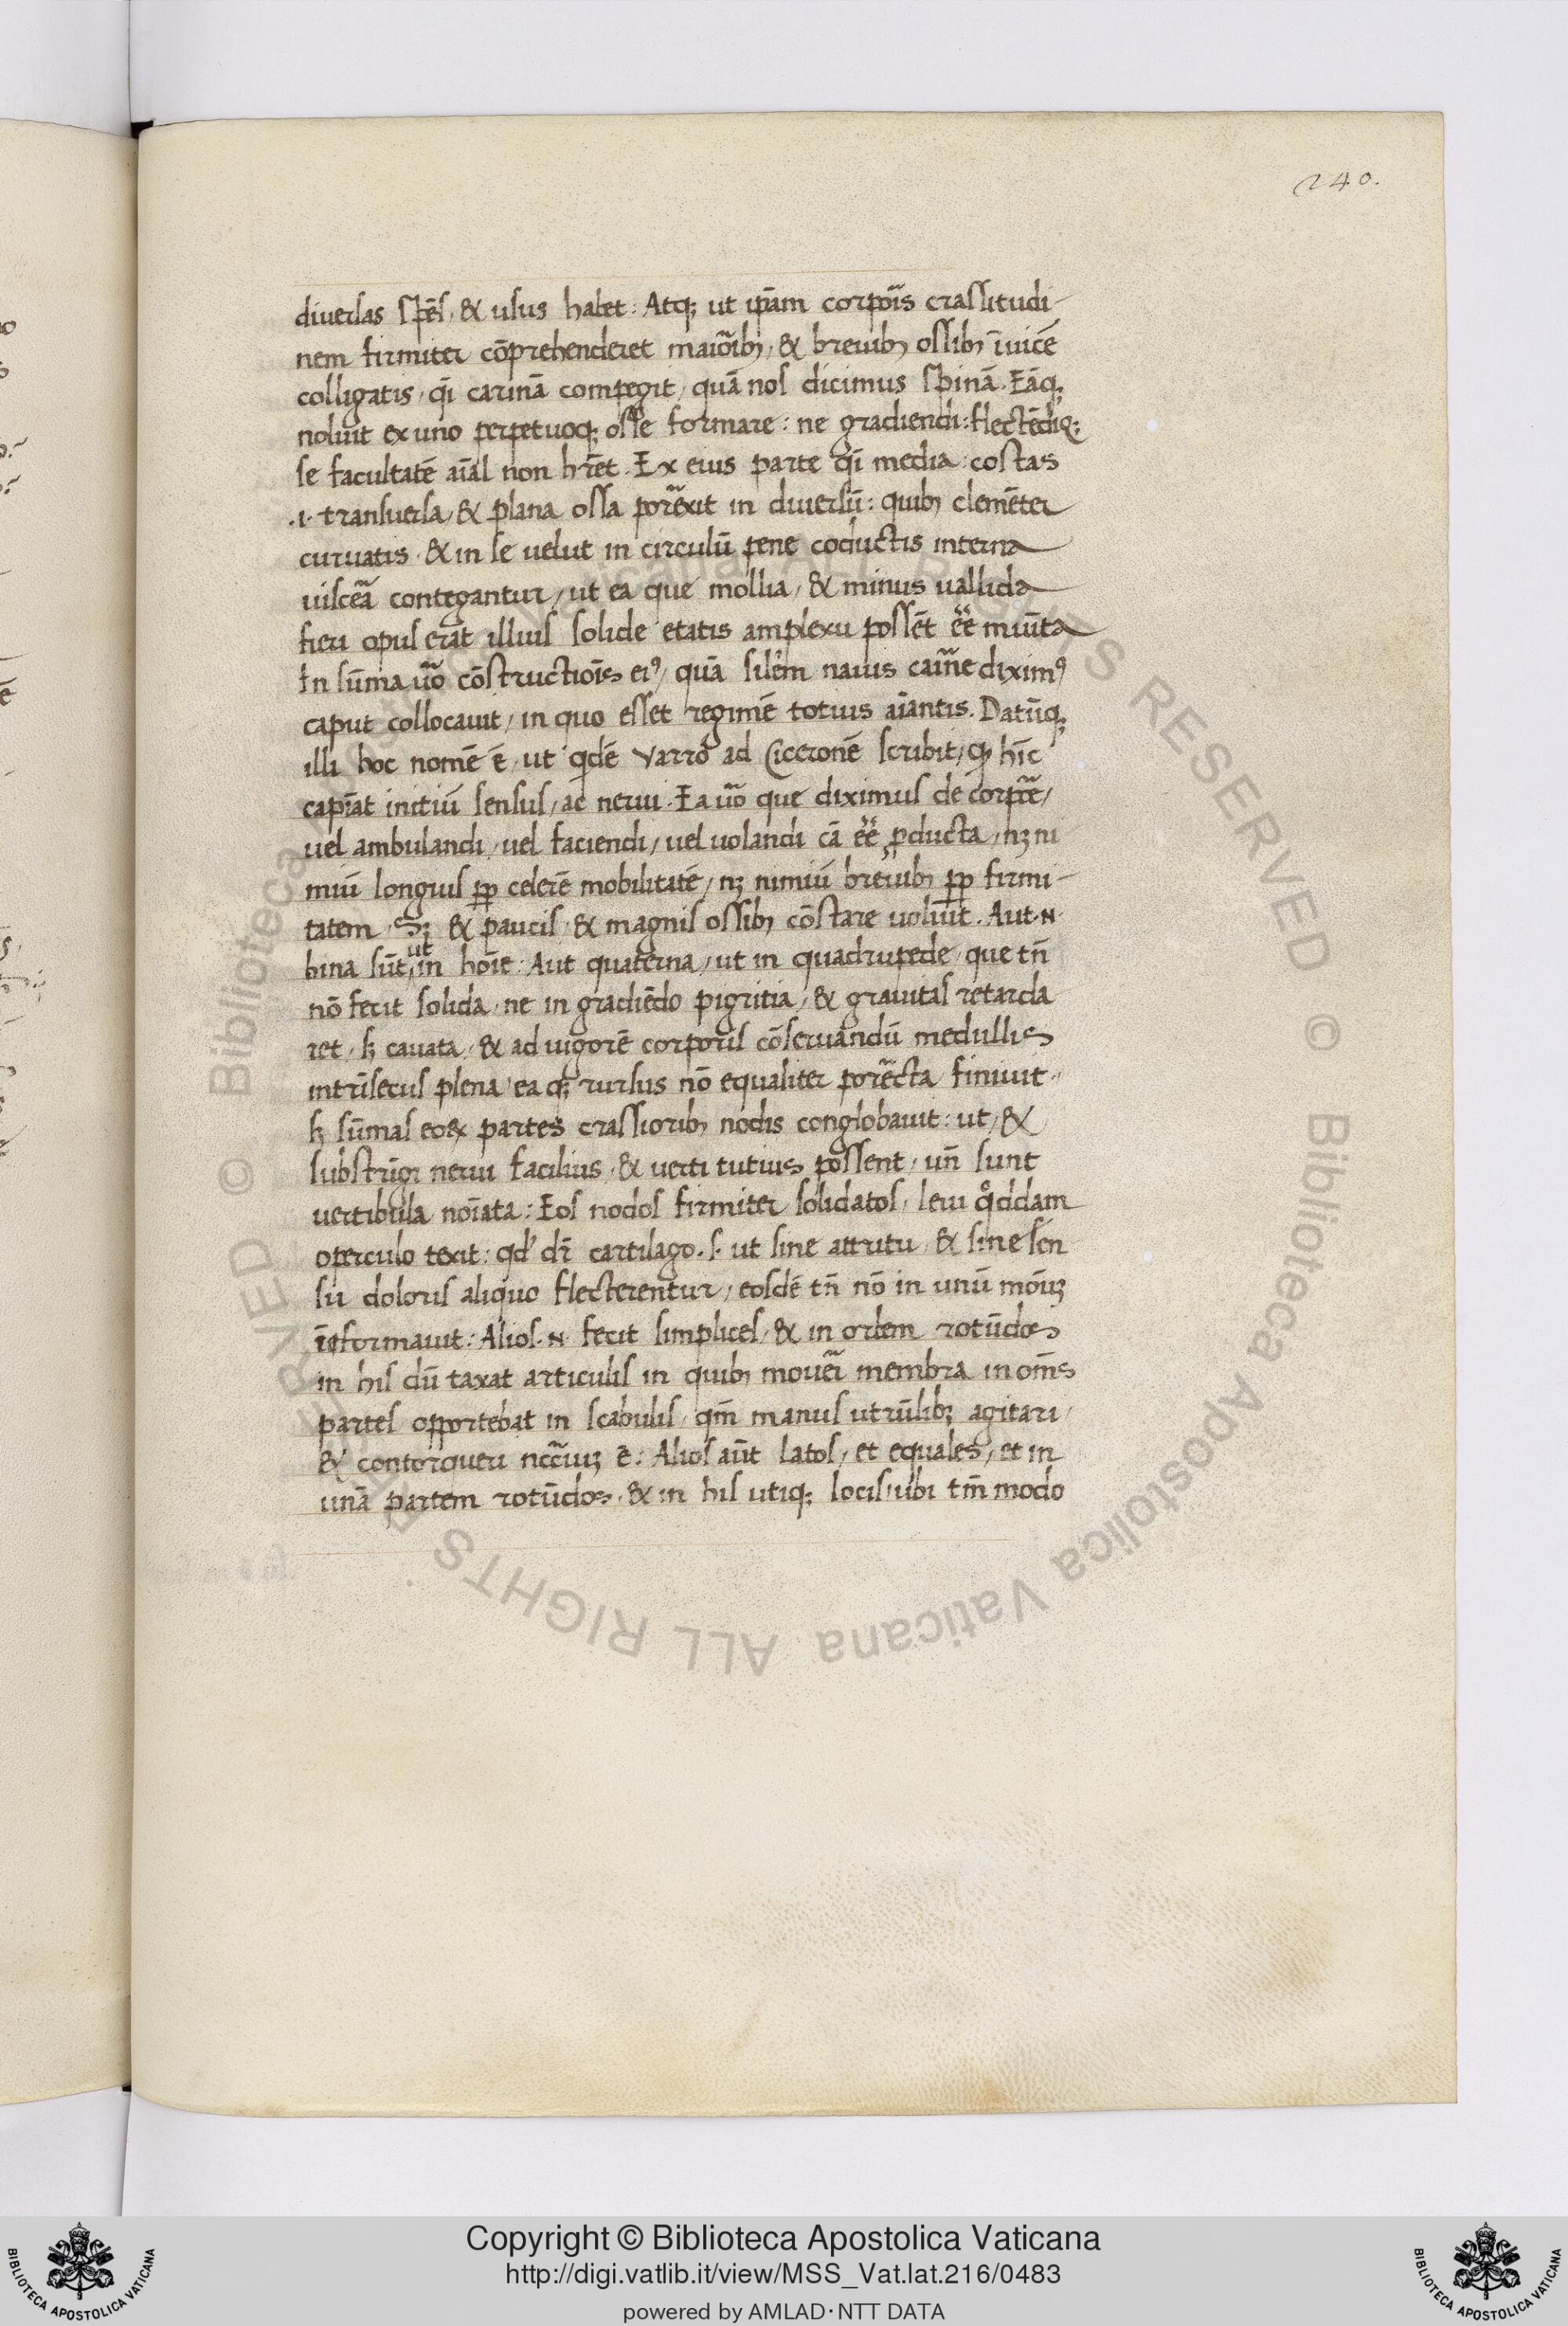 240.
diuersas sp̄es, & usus habet: Atq; ut ip̄am corpoīs crassitudi-
nem firmiter cōprehenderet maiõibꝫ, & breuibꝫ ossibꝫ īuicē
colligatis, q̄i carinā compegit, quā nos dicimus spinā. Eāq;
noluit ex uno perpetuoq; osse formare: ne gradiendi: flectēdiq;
se facultatē aīal non hr̄et. Ex eius parte q̄i media: costas
.i. transuersa, & plana ossa porẽxit in diuersū: quibꝫ clemēter
curuatis & in se uelut in circulū pene coductis interna
uisceã contegantur, ut ea que mollia, & minus uallida
fieri opus erat illius solide etatis amplexu possēt ēē miūta
In sūma uõ cōstructiōis ei⁹, quā silem nauis caĩne dixim⁹
caput collocauit, in quo esset regimē totius aīantis. Datūq;
illi hoc nomē ē, ut qdē Varro ad Ciceronē scribit, qꝫ hīc
capīat initiū sensus, ac nerui. Ea uõ que diximus de corpẽ,
uel ambulandi, uel faciendi, uel uolandi cā ēē ꝓducta, nꝫ ni
miū longius ꝓp celerē mobilitatē, nꝫ nimiū breuibꝫ ꝓp firmi-
tatem. Sꝫ & paucis, & magnis ossibꝫ cōstare uoluit. Aut .N.
bina sūt, ut in hoīe: Aut quaterna, ut in quadrupede, que tn̄
nō fecit solida, ne in gradiēdo pigritia, & grauitas retarda
ret, sꝫ cauata, & ad uigorē corporis cōseruandū medullis
intrīsecus plena, ea q; rursus nō equaliter porẽcta finiuit.
sꝫ sūmas eoꝝ partes crassioribꝫ nodis conglobauit: ut, &
substrīgi nerui facilius, & uerti tutius possent, un̄ sunt
uertibula noīata: Eos nodos firmiter solidatos, leui qͦddam
operculo texit: qd' dr̄ cartilago. s. ut sine attritu, & sine sen
su doloris aliquo flecterentur, eosdē tn̄ nō in unū moūꝫ
īeformauit: Alios .N. fecit simplices, & in orbem rotūdos
in his dū taxat articulis in quibꝫ mouei membra in oms̄
partes opportebat in scabulis, qm̄ manus utrūlibꝫ agitari,
& contorqueri nccãiuꝫ ē: Alios aūt latos, et equales, et in
unā partem rotūdos, & in his utiq; locis, ubi tm̄ modo
© Biblioteca Apostolica Vaticana ALL RIGHTS RESERVED © Biblioteca Apostolica Vaticana ALL RIGHTS RESERVED
Copyright © Biblioteca Apostolica Vaticana
http://digi.vatlib.it/view/MSS_Vat.lat.216/0483
powered by AMLAD·NTT DATA
BIBLIOTECA APOSTOLICA VATICANA
BIBLIOTECA APOSTOLICA VATICANA